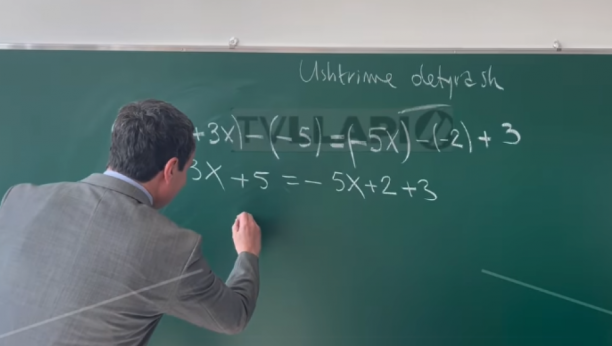 Ushtrime detyrash
+3x)-(-5)=(-5x)-(-2)+3
3x+5=-5x+2+3